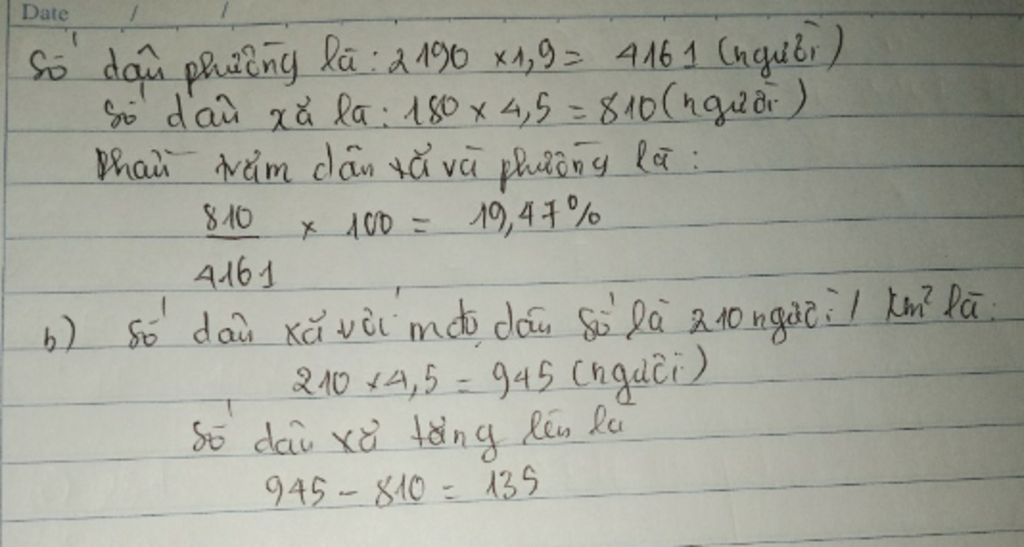 Date / /
Số dân phường là: 2190 × 1,9 = 4161 (người)
Số dân xã là: 180 × 4,5 = 810 (người)
Phần trăm dân xã và phường là:
810
× 100 = 19,47%
4161
b) Số dân xã với mđộ dân số là 210 người / km² là:
210 × 4,5 = 945 (người)
Số dân xã tăng lên là
945 - 810 = 135